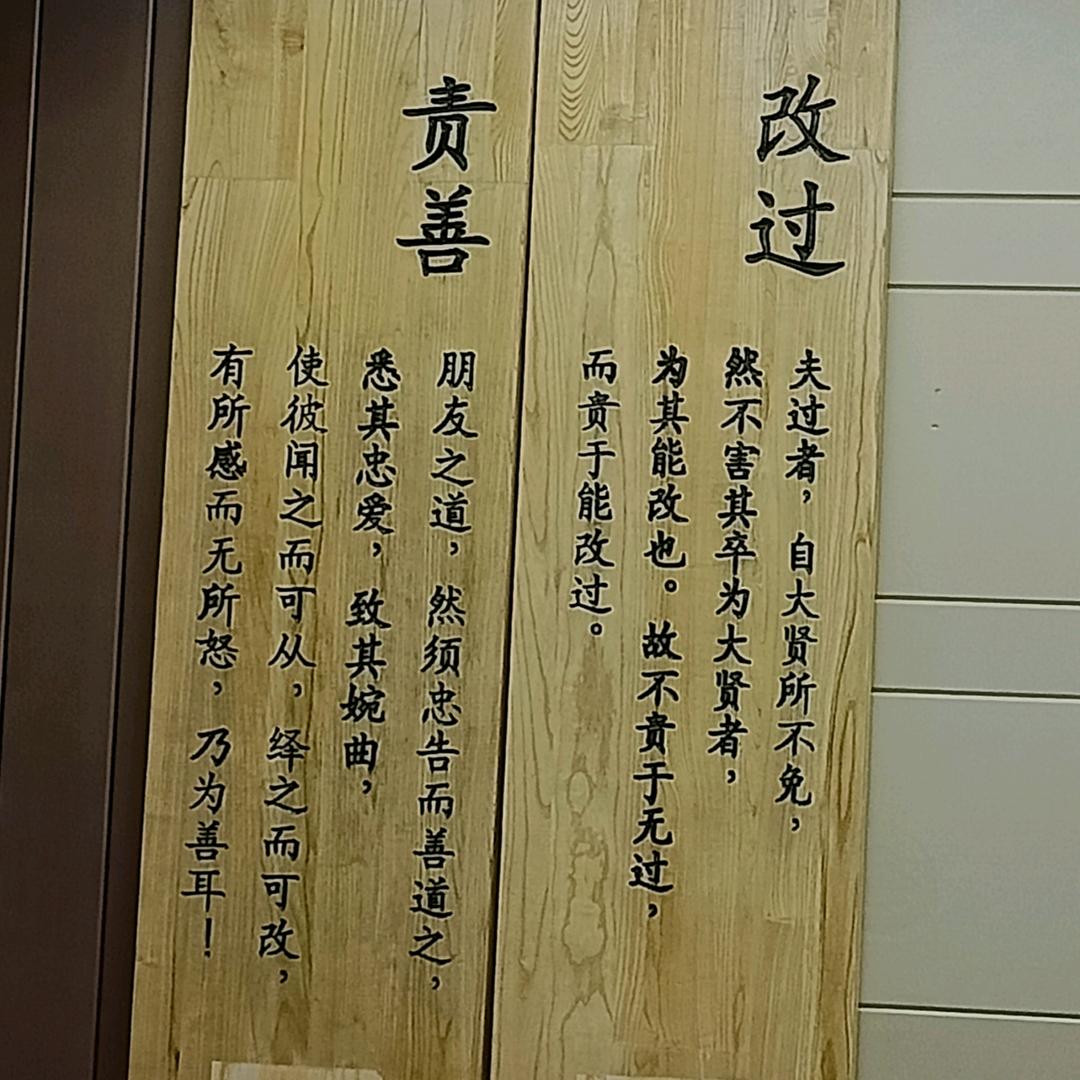 改过
夫过者，自大贤所不免，
然不害其卒为大贤者，
为其能改也。故不贵于无过，
而贵于能改过。
责善
朋友之道，然须忠告而善道之，
悉其忠爱，致其婉曲，
使彼闻之而可从，绎之而可改，
有所感而无所怒，乃为善耳！